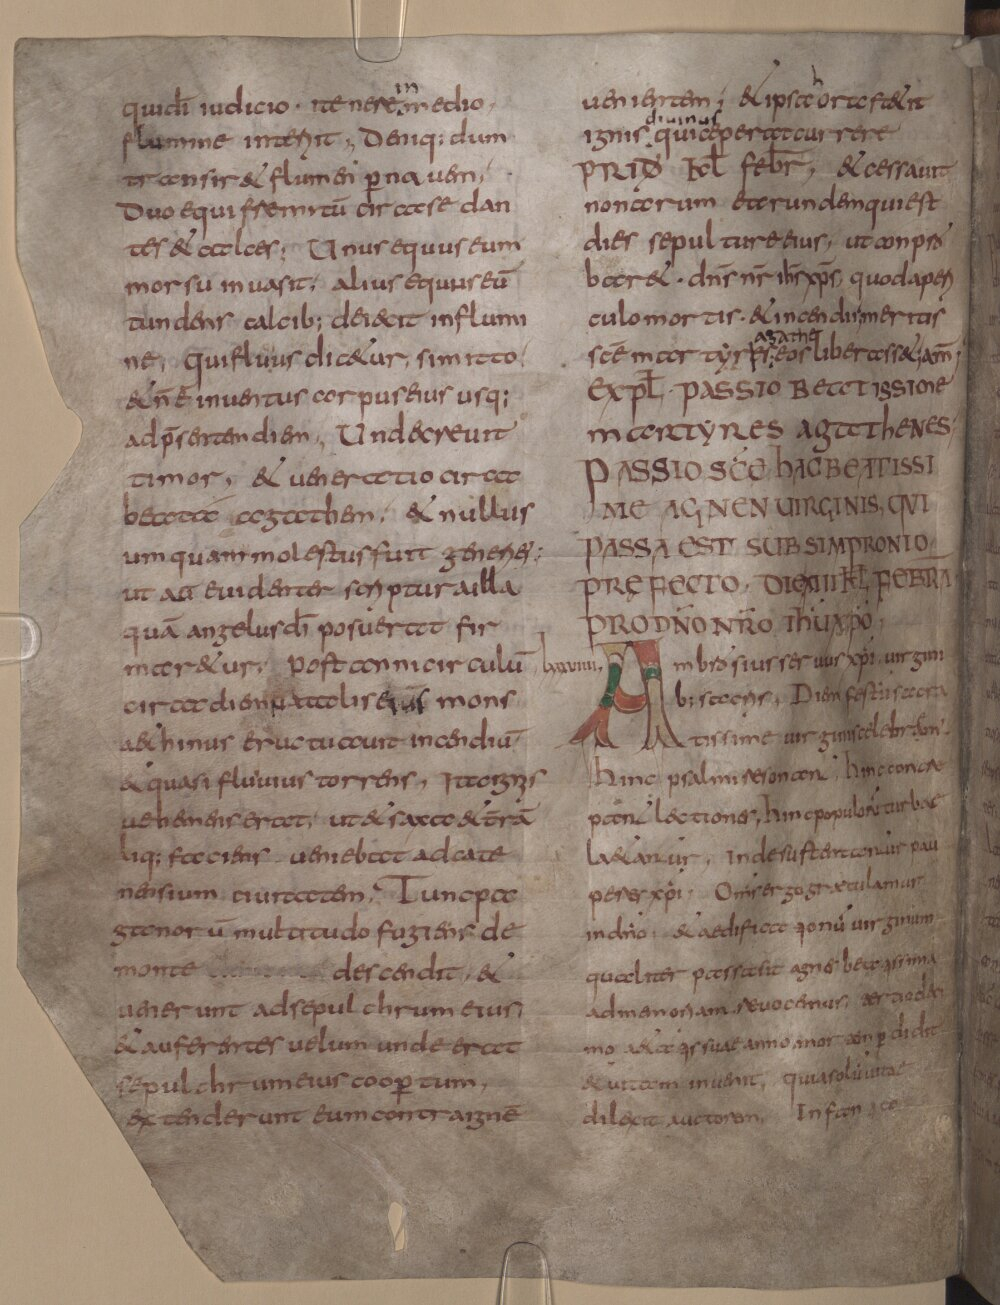 quidi iudicio · itenere in medio,
flumine interiit; Deniq; dum
transir& flumen p nauem,
Duo equi fremitū circa se dan
tes & calces; Unus equus eum
morsu inuasit, alius equus eū
tundens calcib; deiecit influmi
ne, qui fluuius dic&ur, simitto
& nē inuentus corpus eius usq;
ad psentem diem, Unde creuit
timor, & ueneratio circa
beatā agathem, & nullus
umquam molestus fuit generi;
ut aū euidenter scriptura illa
quā angelus dī posuerat fir
mar&ur, post anni circulū
circa diem natalis eius mons
aethinus eructuauit incendiū
& quasi fluuius torrens, Ita ignis
uehemens erat, ut & saxa & terrā
liq; faciens ueniebat ad cate
nensium ciuitatem; Tunc pa
ganorū multitudo fugiens de
monte descendit, &
uenerunt ad sepulchrum eius,
& auferentes uelum unde erat
sepulchrum eius coopertum,
extenderunt eum contra ignē
uenientem; & ipsa hora stetit
ignis diuinus qui cepertat currere
PRID KL febr, & cessauit
nonarum earundem qui est
dies sepulturae eius, ut conpro
bar& · dns nr ihs xps, quod aperi
culo mortis · & incendii meritis
scē martyris suae agathe eos liberass&, am;
Expl · passio beatissime
martyres agathenes;
PASSIO SCE HAC BEATISSI
ME AGNEN UIRGINIS, QUI
PASSA EST SUB SIMPRONIO
PREFECTO, DIE XIII KL FEBRA
PRO DNO NRO IHU XPO,
lxxviiii, Ambrosius seruus xpi uirgini
bi sacris, Diem festū sacra
tissime uirginis celebram
hinc psalmi resonent, hinc concre
pent lectiones, hinc populorū turbae
laetantur, Inde sustentantur pau
peres xpi, Oms ergo gratulamur
in dno, & aedificatione uirginum
qualiter passa sit agnes beatissima
ad memoriam reuocemus, tertio deci
mo aetatis suae anno mortem perdidit
& uitam inuenit, quia solū uitae
dilexit auctorem, Infan